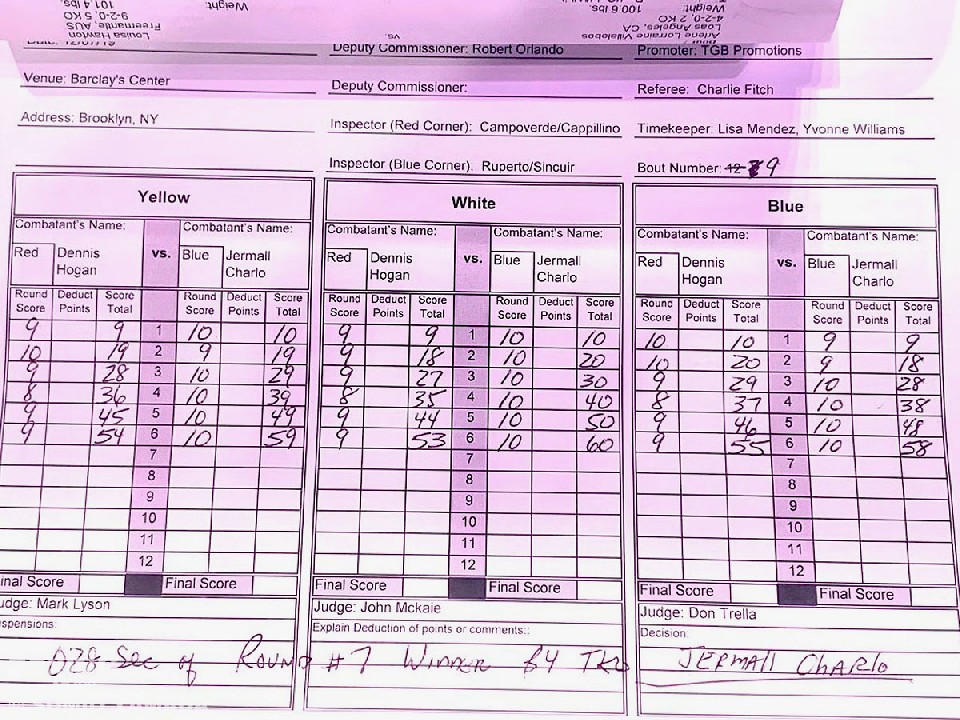 Weight:
101.4 lbs.
9-2-0, 5 KO
Freemantle, AUS
Louisa Hawton
vs.
Weight:
100.6 lbs.
4-2-0, 2 KO
Loas Angeles, CA
Arlene Lorraine Villalobos
Deputy Commissioner: Robert Orlando
Promoter: TGB Promotions
Venue: Barclay's Center
Deputy Commissioner:
Referee: Charlie Fitch
Address: Brooklyn, NY
Inspector (Red Corner): Campoverde/Cappillino
Timekeeper: Lisa Mendez, Yvonne Williams
Inspector (Blue Corner). Ruperto/Sincuir
Bout Number: 9
Yellow White Blue
Combatant's Name: Combatant's Name: Combatant's Name: Combatant's Name: Combatant's Name: Combatant's Name:
Red Dennis Hogan vs. Blue Jermall Charlo Red Dennis Hogan vs. Blue Jermall Charlo Red Dennis Hogan vs. Blue Jermall Charlo
Round Score Deduct Points Score Total Round Score Deduct Points Score Total Round Score Deduct Points Score Total Round Score Deduct Points Score Total Round Score Deduct Points Score Total Round Score Deduct Points Score Total
9 9 1 10 10 9 9 1 10 10 10 10 1 9 9
10 19 2 9 19 9 18 2 10 20 10 20 2 9 18
9 28 3 10 29 9 27 3 10 30 9 29 3 10 28
8 36 4 10 39 8 35 4 10 40 8 37 4 10 38
9 45 5 10 49 9 44 5 10 50 9 46 5 10 48
9 54 6 10 59 9 53 6 10 60 9 55 6 10 58
7 7 7
8 8 8
9 9 9
10 10 10
11 11 11
12 12 12
inal Score Final Score Final Score Final Score Final Score Final Score
udge: Mark Lyson Judge: John Mckaie Judge: Don Trella
spensions: Explain Deduction of points or comments:: Decision:
028 Sec of Round #7 Winner By TKO JERMAll CHARlo